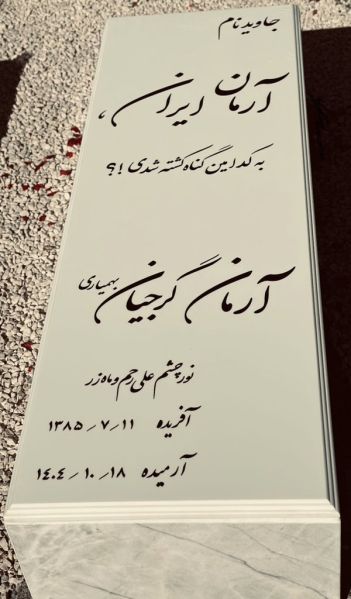 جاوید نام
آرمان ایران،
به کدامین گناه کشته شدی !؟
آرمان گرجیان بهمیاری
نور چشم علی رحم و ماه زر
آفریده ۱۱ / ۷ / ۱۳۸۵
آرمیده ۱۸ / ۱۰ / ۱۴۰۴